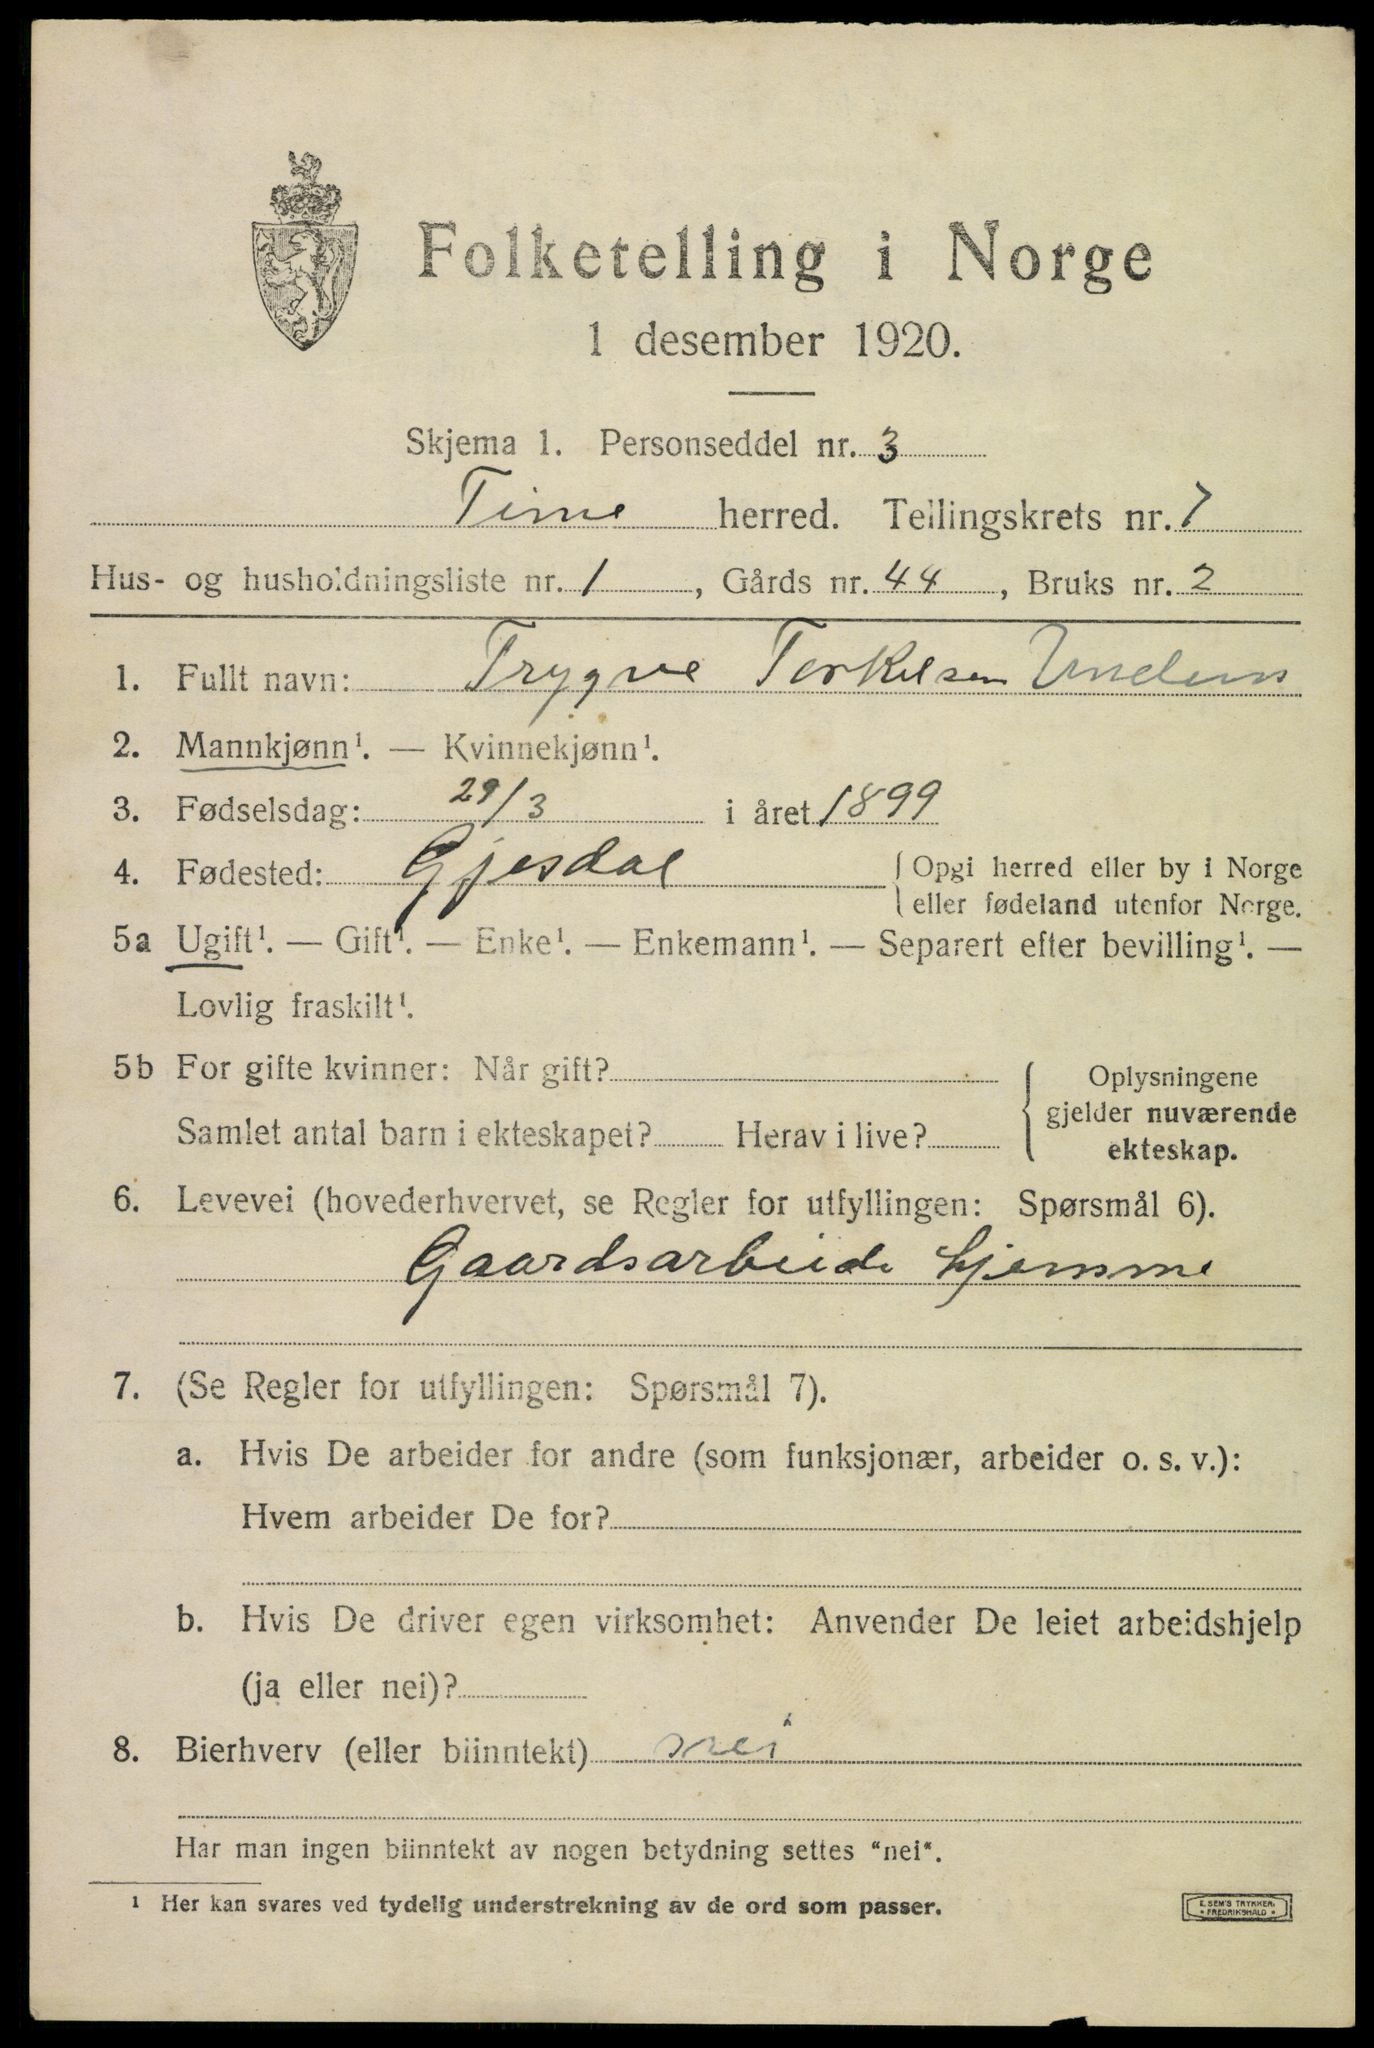 Folketelling i Norge
1 desember 1920.
Skjema 1. Personseddel nr. 3
Time herred. Tellingskrets nr. 7
Hus- og husholdningsliste nr. 1, Gårds nr. 44, Bruks nr. 2
1. Fullt navn: Trygve Torkelsen
2. Mannkjønn¹. — Kvinnekjønn¹.
3. Fødselsdag: 29/3 i året 1899
4. Fødested: Gjesdal { Opgi herred eller by i Norge
eller fødeland utenfor Norge.
5a Ugift¹. — Gift¹. — Enke¹. — Enkemann¹. — Separert efter bevilling¹. —
Lovlig fraskilt¹.
5b For gifte kvinner: Når gift? { Oplysningene
gjelder nuværende
Samlet antal barn i ekteskapet? Herav i live?
ekteskap.
6. Levevei (hovederhvervet, se Regler for utfyllingen: Spørsmål 6).
Gaardsarbeide hjemme
7. (Se Regler for utfyllingen: Spørsmål 7).
a. Hvis De arbeider for andre (som funksjonær, arbeider o. s. v.):
Hvem arbeider De for?
b. Hvis De driver egen virksomhet: Anvender De leiet arbeidshjelp
(ja eller nei)?
8. Bierhverv (eller biinntekt) nei
Har man ingen biinntekt av nogen betydning settes "nei".
¹ Her kan svares ved tydelig understrekning av de ord som passer.
E. SEM'S TRYKKERI
FREDRIKSHALD